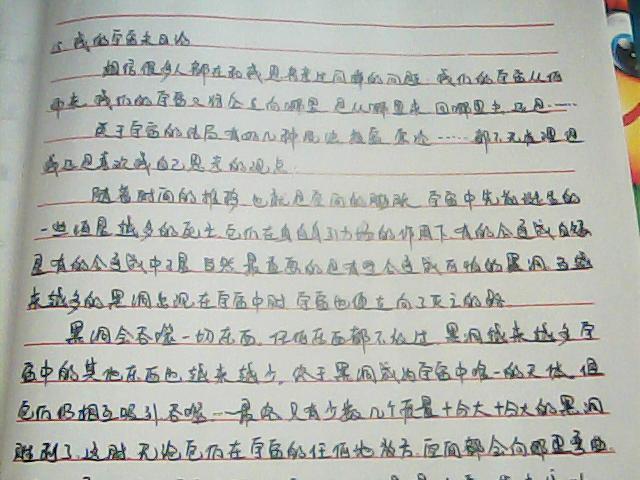 我的宇宙末日论
相信很多人都在和我思考着这同样的问题,我们的宇宙从何
而来,我们的宇宙又将会走向哪里,是从哪里来回哪里去还是……
关于宇宙的结局有四几种 热寂 ……都不无道理但
我还是喜欢我自己思考的观点:
随着时间的推移,也就是空间的膨胀,宇宙中先前诞生的
一些恒星越来越多的死去,它们在自身引力的作用下有的会变成白矮
星有的会变成中子星,当然最重要的是有些会变成可怕的黑洞,当越
来越多的黑洞出现在宇宙中时,宇宙也便走向了灭亡的路
黑洞会吞噬一切东西,任何东西都不放过,黑洞越来越多,宇
宙中的其他东西也越来越少,终于黑洞成为宇宙中唯一的天体,但
它们仍相互吸引、吞噬……最终只有少数几个质量十分大十分大的黑洞
胜利了,这时无论它们在宇宙的任何地方,空间都会向那里弯曲,